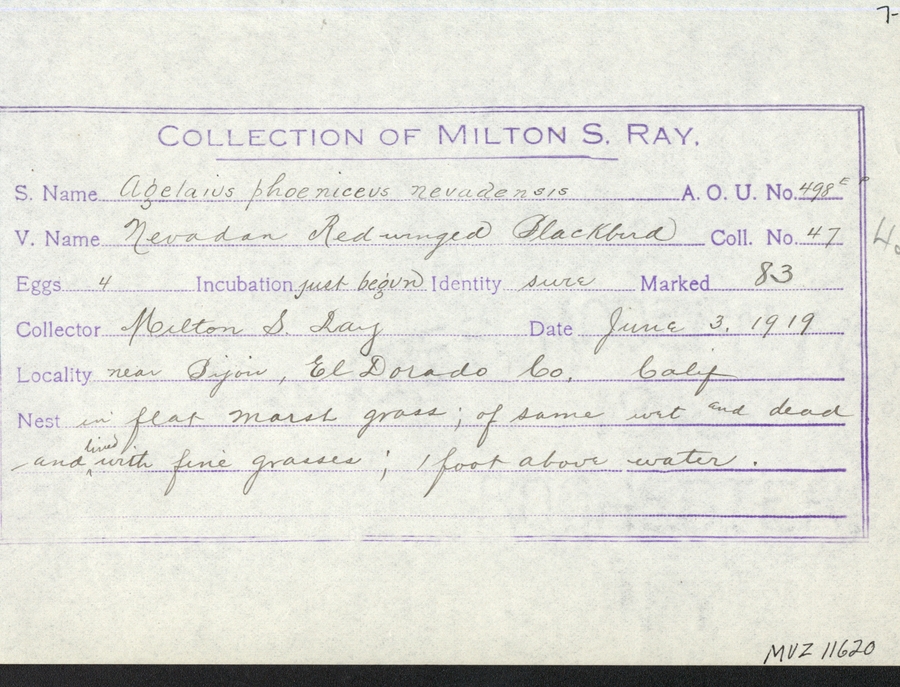 7-
COLLECTION OF MILTON S. RAY.
S. Name Agelaius phoeniceus nevadensis A. O. U. No. 498E
V. Name Nevadan Red-winged Blackbird Coll. No. 47
Eggs 4 Incubation just begun Identity sure Marked 83
Collector Milton S. Ray Date June 3. 1919
Locality near Bijou, El Dorado Co. Calif
Nest in flat marsh grass; of same wet and dead
and lined with fine grasses; 1 foot above water.
MVZ 11620